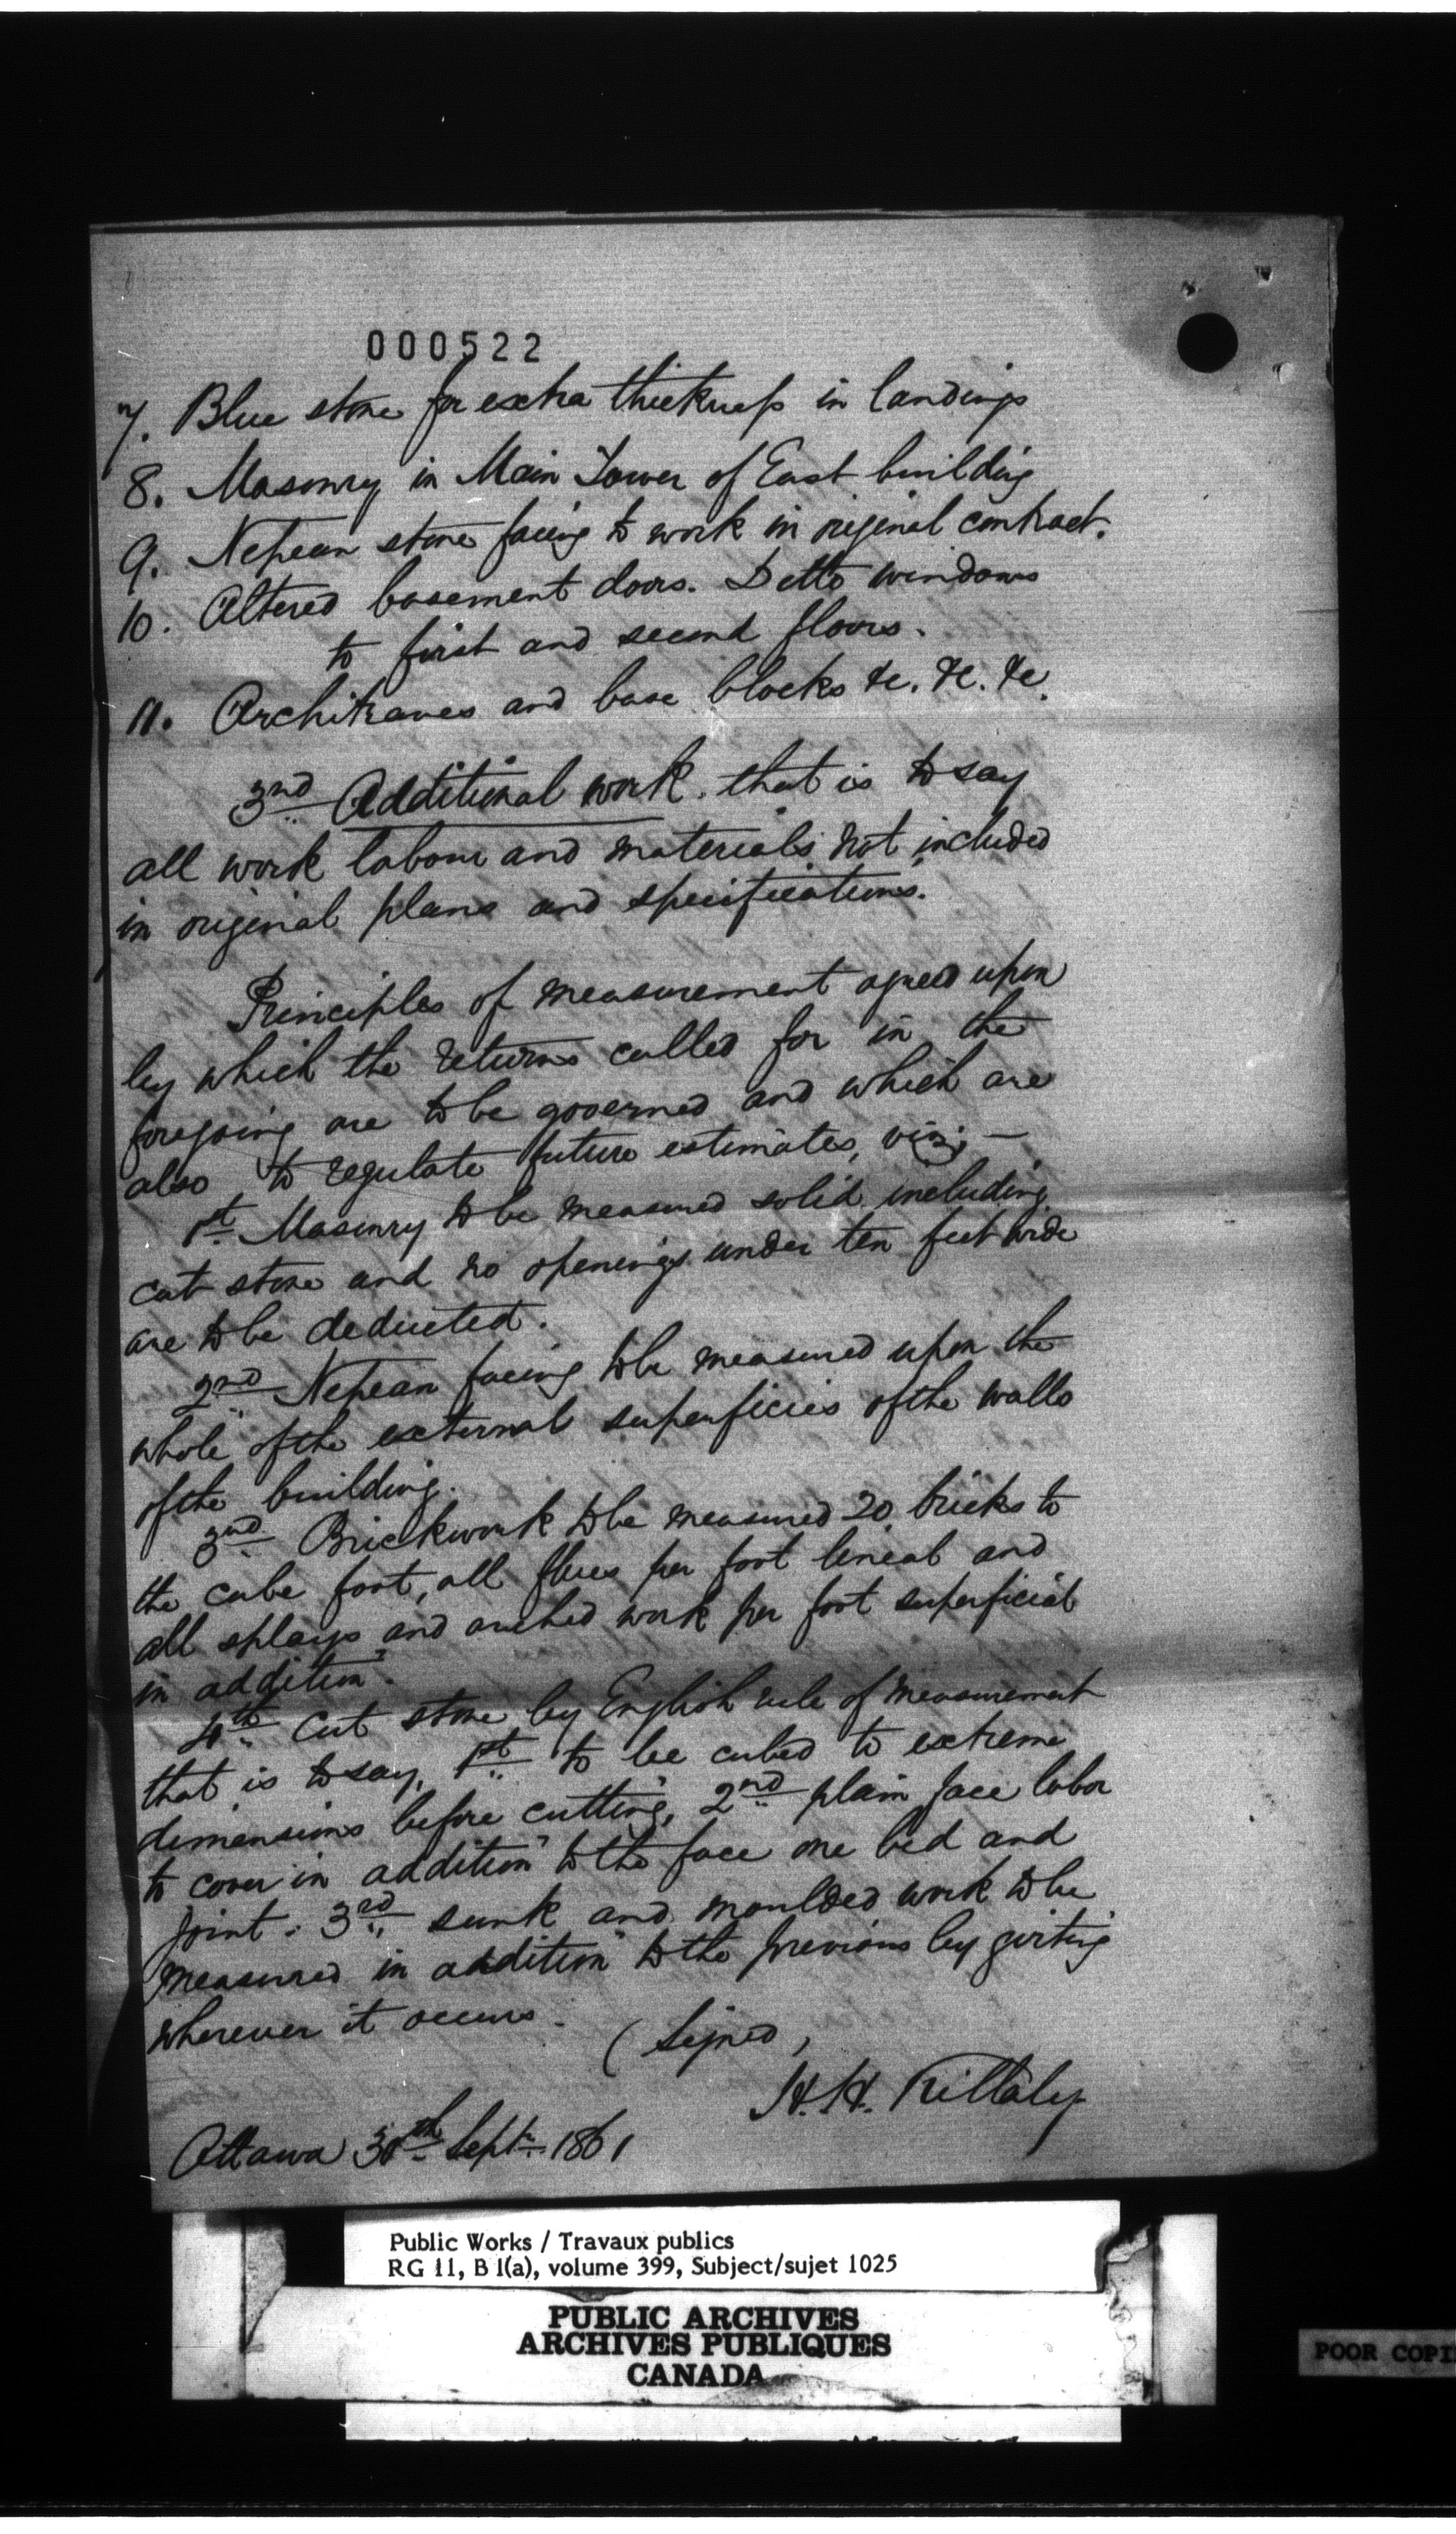 000522
7. Blue stone for extra thickness in landings
8. Masonry in Main Tower of East building
9. Nepean stone facing to work in original contract.
10. Altered basement doors. Ditto windows
to first and second floors.
11. Architraves and base blocks &c. &c. &c.
3rd Additional work. that is to say
all work labour and materials not included
in original plans and specifications.
Principles of measurement agreed upon
by which the returns called for in the
foregoing are to be governed and which are
also to regulate future estimates, viz; —
1st Masonry to be measured solid including
cut stone and no openings under ten feet wide
are to be deducted.
2nd Nepean facing to be measured upon the
whole of the external superficies of the walls
of the building.
3rd Brickwork to be measured 20 bricks to
the cube foot, all flues per foot lineal and
all splays and arched work per foot superficial
in addition.
4th Cut stone by English rule of measurement
that is to say, 1st to be cubed to extreme
dimensions before cutting, 2nd plain face labor
to cover in addition to the face one bed and
joint. 3rd sunk and moulded work to be
measured in addition to the previous by girting
wherever it occurs.
(Signed,
H.H. Killaly
Ottawa 30th Sept. 1861
Public Works / Travaux publics
RG 11, B 1(a), volume 399, Subject/sujet 1025
PUBLIC ARCHIVES
ARCHIVES PUBLIQUES
CANADA
POOR COPI